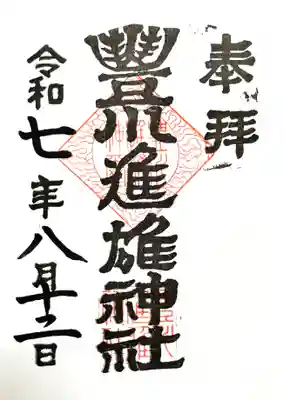 奉拝
豊川進雄神社
令和七年八月十二日